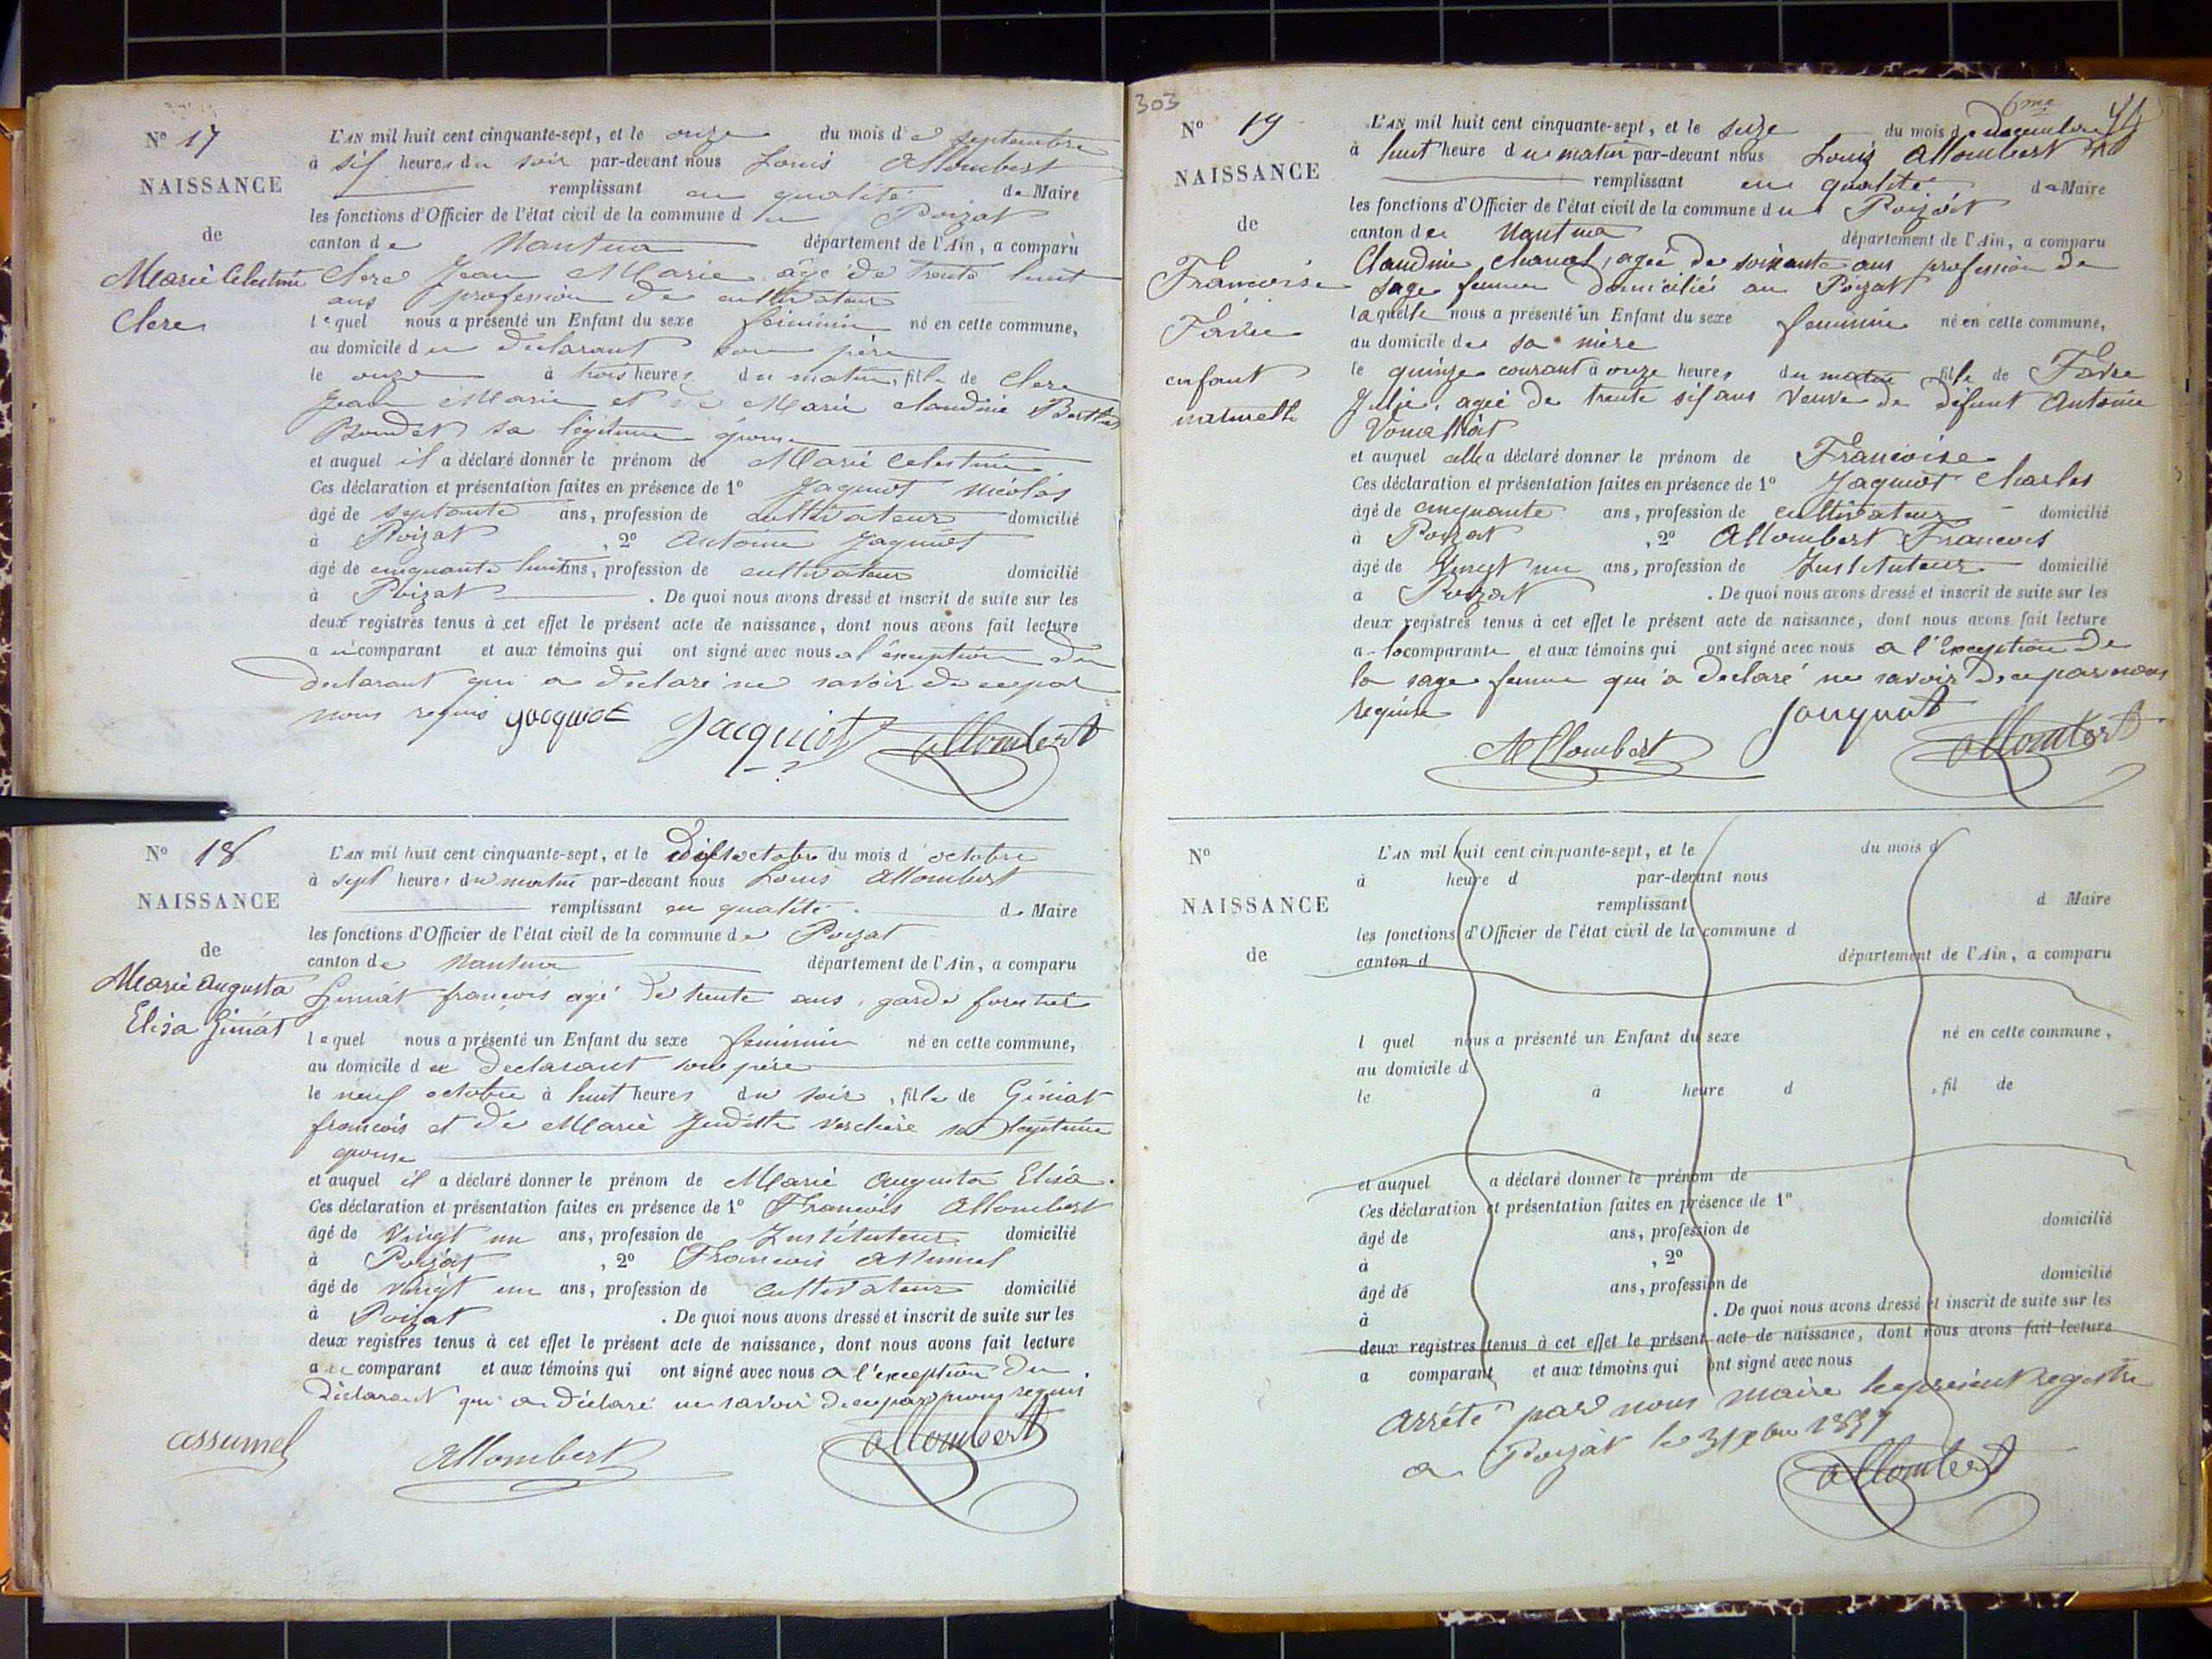 N° 17
NAISSANCE
de
Marie Celestine
Clerc
L'AN mil huit cent cinquante-sept, et le onze du mois de septembre
à six heures du soir par-devant nous Louis Allombert
remplissant en qualité de Maire
les fonctions d'Officier de l'état civil de la commune du Poizat
canton de Nantua département de l'Ain, a comparu
Clerc Jean Marie âgé de trente huit
ans profession de cultivateur
lequel nous a présenté un Enfant du sexe féminin né en cette commune,
au domicile du déclarant son père
le onze à trois heures du matin, fille de Clerc
Jean Marie et de Marie Claudine
sa légitime épouse
et auquel il a déclaré donner le prénom de Marie Celestine
Ces déclaration et présentation faites en présence de 1° Jaquiot Nicolas
âgé de septante ans, profession de cultivateur domicilié
à Poizat, 2° Antoine Jaquiot
âgé de cinquante huit ans, profession de cultivateur domicilié
à Poizat. De quoi nous avons dressé et inscrit de suite sur les
deux registres tenus à cet effet le présent acte de naissance, dont nous avons fait lecture
au comparant et aux témoins qui ont signé avec nous a l'exception du
déclarant qui a déclaré ne savoir de ce par
nous requis Jacquiot Jacquiot Allombert
N° 18
NAISSANCE
de
Marie Augusta
Elisa Giniat
L'AN mil huit cent cinquante-sept, et le octobre du mois d octobre
à sept heures du matin par-devant nous Louis Allombert
remplissant en qualité de Maire
les fonctions d'Officier de l'état civil de la commune de Poizat
canton de Nantua département de l'Ain, a comparu
Giniat françois agé de trente ans, garde forestier
lequel nous a présenté un Enfant du sexe feminin né en cette commune,
au domicile du declarant son père
le neuf octobre à huit heures du soir, fille de Giniat
françois et de Marie Judith sa légitime
epouse
et auquel il a déclaré donner le prénom de Marie Augusta Elisa.
Ces déclaration et présentation faites en présence de 1° François Allombert
âgé de vingt un ans, profession de Instituteur domicilié
à Poizat, 2° François Assumel
âgé de vingt un ans, profession de cultivateur domicilié
à Poizat. De quoi nous avons dressé et inscrit de suite sur les
deux registres tenus à cet effet le présent acte de naissance, dont nous avons fait lecture
au comparant et aux témoins qui ont signé avec nous a l'exception du
Déclarant qui a déclaré ne savoir de ce par nous requis.
assumel Allombert Allombert
303
6me
N° 19
NAISSANCE
de
Francoise
Favre
enfant
naturelle
L'AN mil huit cent cinquante-sept, et le seize du mois de decembre
à huit heure du matin par-devant nous Louis Allombert
remplissant en qualité de Maire
les fonctions d'Officier de l'état civil de la commune du Poizat
canton de Nantua département de l'Ain, a comparu
Claudine, agée de soixante ans profession de
sage femme domiciliée au Poizat
laquelle nous a présenté un Enfant du sexe feminin né en cette commune,
au domicile de sa mère
le quinze courant à onze heures du matin fille de Favre
Julie, agée de trente six ans veuve de défunt Antoine
et auquel elle a déclaré donner le prénom de Francoise
Ces déclaration et présentation faites en présence de 1° Jaquiot Charles
âgé de cinquante ans, profession de cultivateur domicilié
à Poizat, 2° Allombert Francois
âgé de vingt un ans, profession de Instituteur domicilié
à Poizat. De quoi nous avons dressé et inscrit de suite sur les
deux registres tenus à cet effet le présent acte de naissance, dont nous avons fait lecture
a la comparante et aux témoins qui ont signé avec nous a l'exception de
la sage femme qui a déclaré ne savoir de ce par nous
requise
Allombert Jacquiot Allombert
N°
NAISSANCE
de
L'AN mil huit cent cinquante-sept, et le du mois d
à heure d par-devant nous
remplissant d Maire
les fonctions d'Officier de l'état civil de la commune d
canton d département de l'Ain, a comparu
l quel nous a présenté un Enfant du sexe né en cette commune,
au domicile d
le à heure d , fil de
et auquel a déclaré donner le prénom de
Ces déclaration et présentation faites en présence de 1°
âgé de ans, profession de domicilié
à , 2°
âgé de ans, profession de domicilié
à . De quoi nous avons dressé et inscrit de suite sur les
deux registres tenus à cet effet le présent acte de naissance, dont nous avons fait lecture
a comparant et aux témoins qui ont signé avec nous
Arrété par nous maire le présent Registre
a Poizat le 31 1857
Allombert